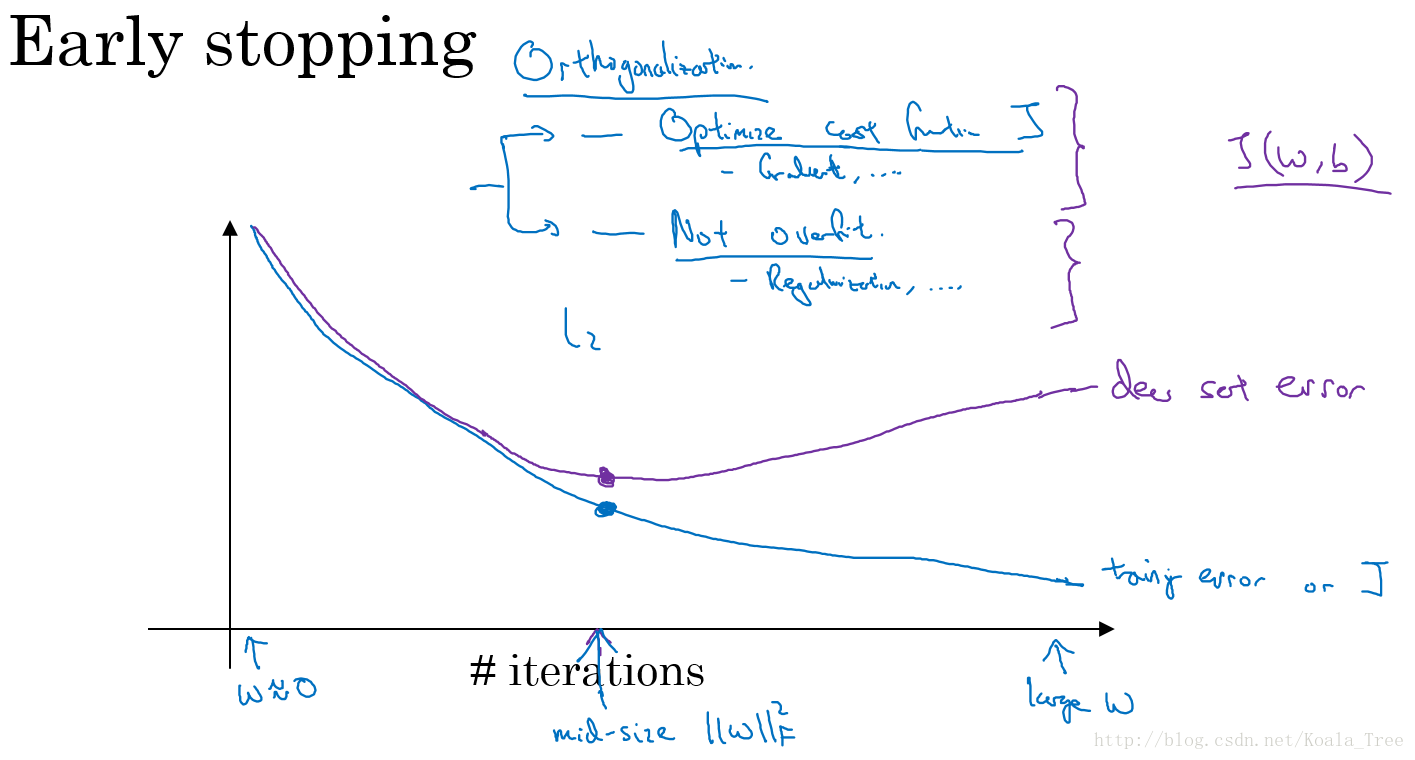 Early stopping
Orthogonalization.
— Optimize cost function J
- Gradient, ....
J(w,b)
— Not overfit.
- Regularization, ....
L2
dev set error
training error or J
# iterations
w≈0
mid-size ||w||²F
large w
http://blog.csdn.net/Koala_Tree